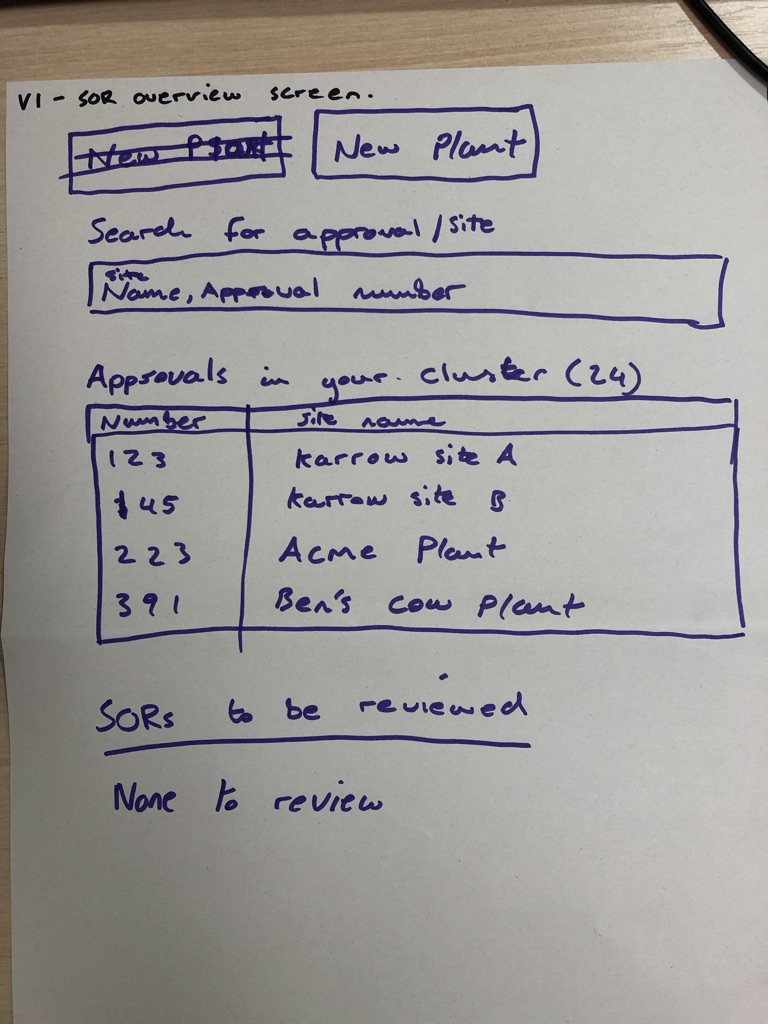 V1 - SOR overview screen.
New Plant New Plant
Search for approval/site
site
Name, Approval number
Approvals in your cluster (24)
Number site name
123 Karrow site A
145 Karrow site B
223 Acme Plant
391 Ben's cow plant
SORs to be reviewed
None to review